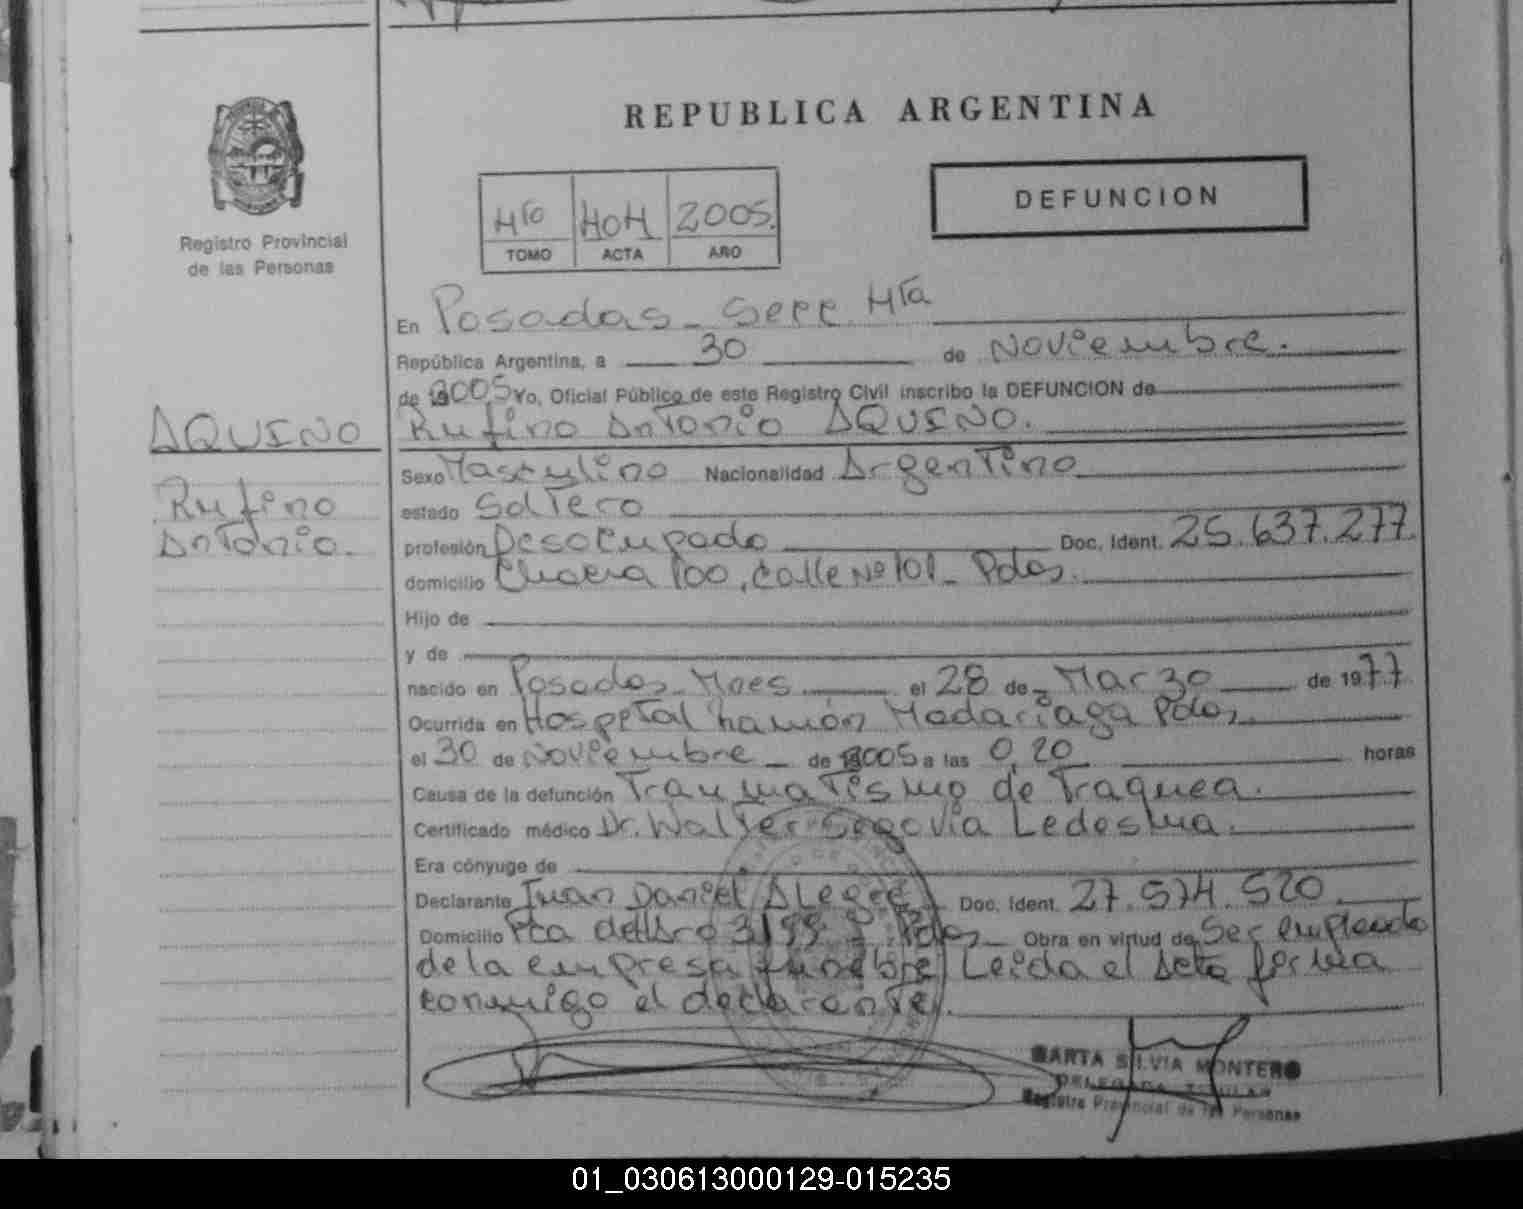 REPUBLICA ARGENTINA
DEFUNCION
Registro Provincial
de las Personas
4to 404 2005.
TOMO ACTA AÑO
En Posadas - Secc. 4ta
República Argentina, a 30 de Noviembre.
de 2005 Yo, Oficial Público de este Registro Civil inscribo la DEFUNCION de
AQUINO
Rufino Antonio AQUINO.
Rufino
Antonio.
Sexo Masculino Nacionalidad Argentino
estado Soltero
profesión Desocupado Doc. Ident. 25.637.277.
domicilio Chacra 100, calle Nº 101 - Pdas.
Hijo de
y de
nacido en Posadas - Mnes el 28 de Marzo de 1977
Ocurrida en Hospital Ramón Madariaga Pdas.
el 30 de Noviembre de 2005 a las 0,20 horas
Causa de la defunción Traumatismo de Traquea.
Certificado médico Dr. Walter Segovia Ledesma.
Era cónyuge de
Declarante Juan Daniel Alegre Doc. Ident. 27.574.520
Domicilio Pdas Obra en virtud de Ser empleado
de la empresa funebre Leida el Acta firma
conmigo el declarante.
MARTA SILVIA MONTERO
DELEGADA TITULAR
Registro Provincial de las Personas
01_030613000129-015235